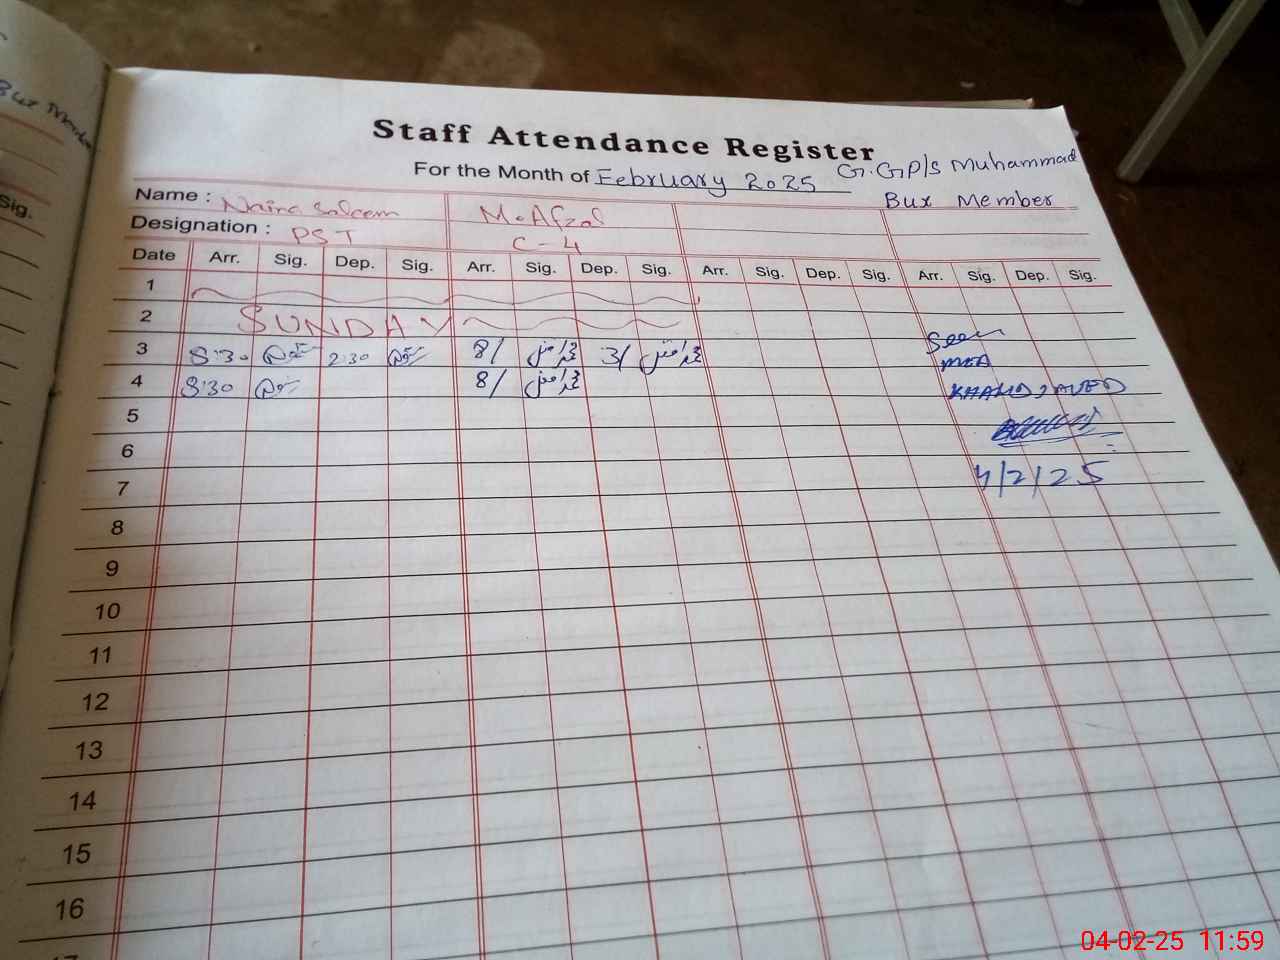 Staff Attendance Register
For the Month of February 2025 G.GP/S Muhammad
Bux Member
Name : Naira Saleem M. Afzal
Designation : PST C-4
Date Arr. Sig. Dep. Sig. Arr. Sig. Dep. Sig. Arr. Sig. Dep. Sig. Arr. Sig. Dep. Sig.
1
2 SUNDAY
3 8:30 2:30 8/ محمد افضل 3/ محمد افضل Seen
4 8:30 8/ محمد افضل MEA
KHALID JAVED
5
6
7 4/2/25
8
9
10
11
12
13
14
15
16
17
Sig.
04-02-25 11:59